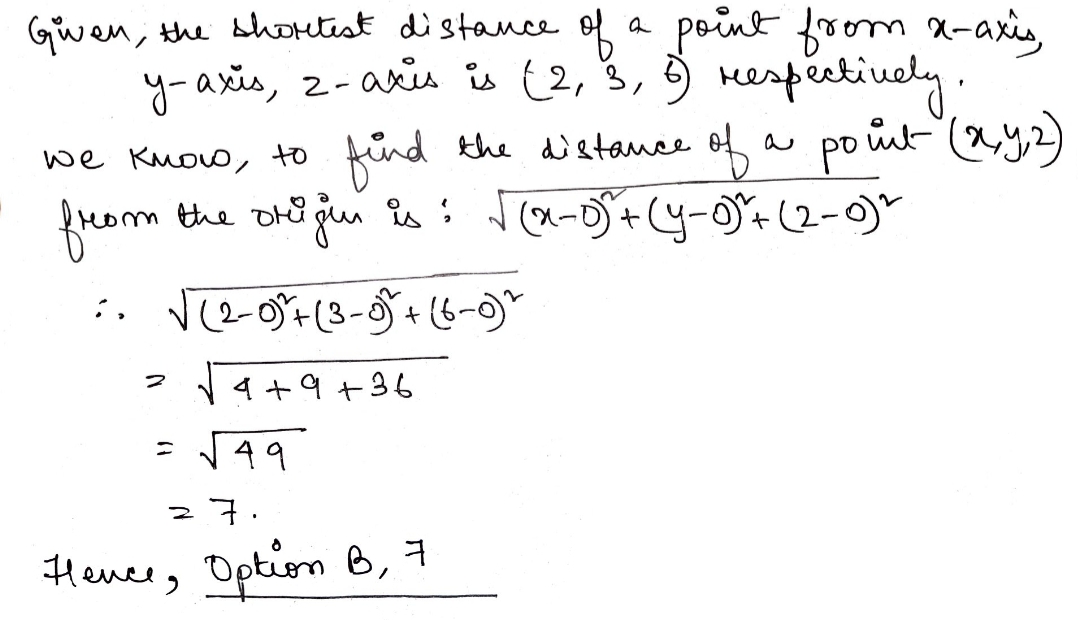 Given, the shortest distance of a point from x-axis,
y-axis, z-axis is (2, 3, 6) respectively.
we know, to find the distance of a point (x,y,z)
from the origin is : √(x-0)²+(y-0)²+(z-0)²
∴ √(2-0)²+(3-0)²+(6-0)²
= √4+9+36
= √49
= 7.
Hence, Option B, 7